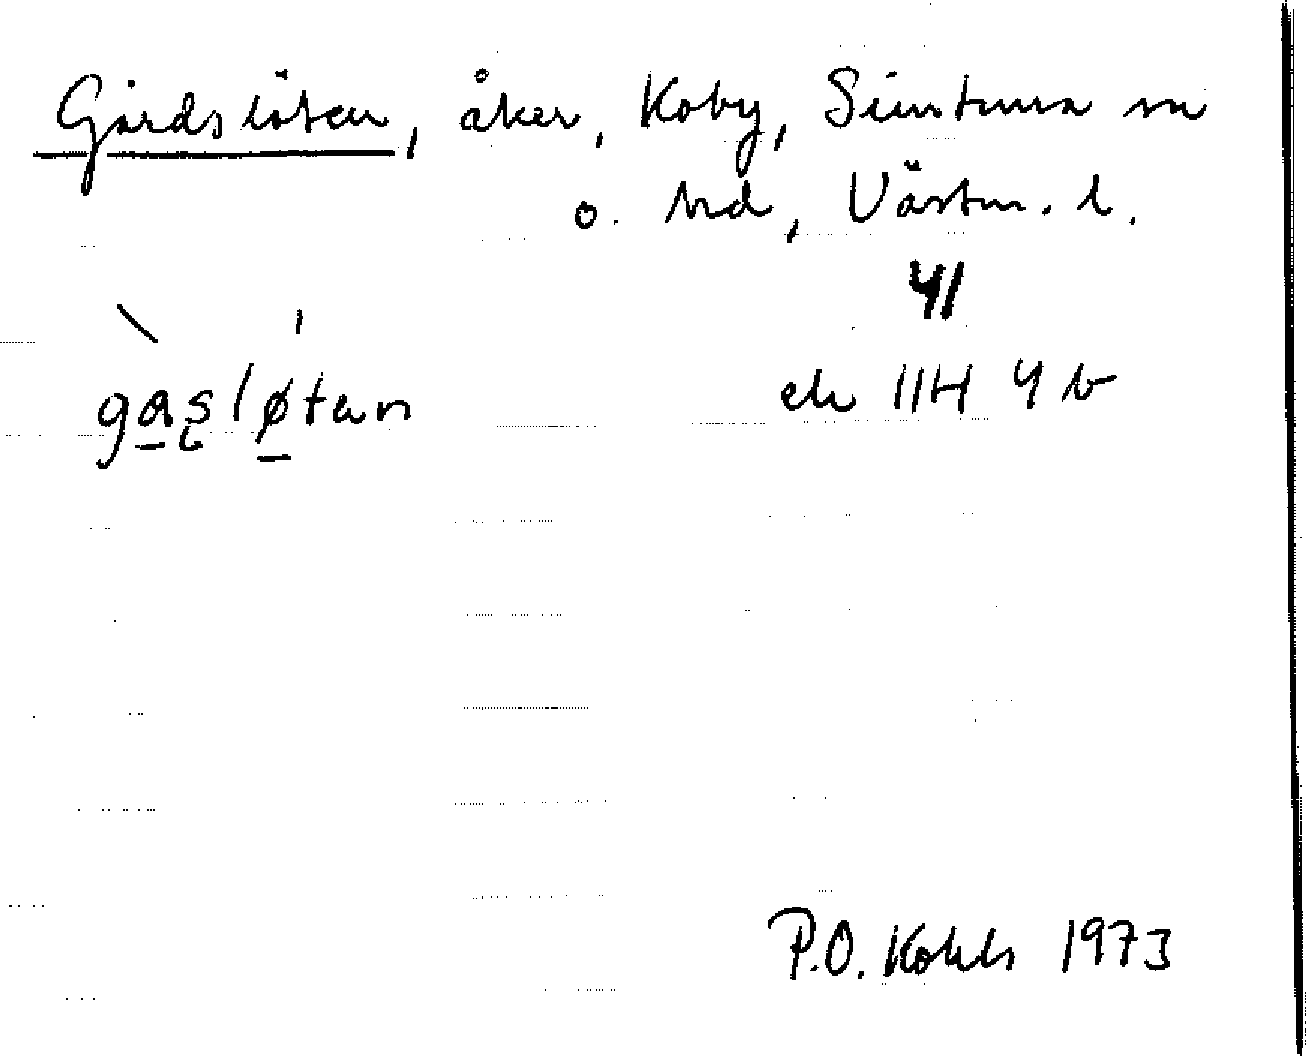 Gårdslöten, åker, Koby, Simtuna sn
o. hd, Västm. l.
41
gasløtan
ek 11H 4b
P.O. Kohls 1973